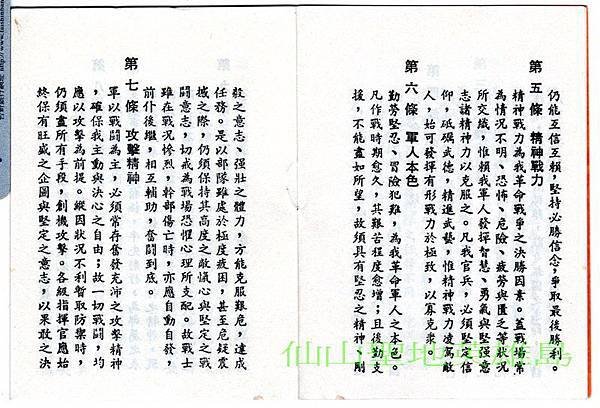 仍能互信互賴，堅持必勝信念，爭取最後勝利。
第五條　精神戰力
精神戰力為我革命戰爭之決勝因素。蓋戰場常
為情況不明、恐怖、危險、疲勞與匱乏等狀況
所交熾，惟賴我軍人發揮智慧、勇氣與堅強意
志諸精神力以克服之。凡我官兵，必須堅定信
仰，砥礪武德，精進武藝，惟精神戰力凌駕敵
人，始可發揮有形戰力於極致，以寡克衆。
第六條　軍人本色
勤勞堅忍、冒險犯難，為我革命軍人之本色。
凡作戰時期愈久，其艱苦程度愈增；且後勤支
援，不能盡如所望，故須具有堅忍之精神、剛
毅之意志、強壯之體力，方能克服艱危，達成
任務。是以部隊雖處於極度疲困，甚至危疑震
撼之際，仍須保持其高度之敵愾心與堅定之戰
鬪意志，切戒為戰場恐懼心理所支配。故戰士
雖在戰況慘烈，幹部傷亡時，亦應自動自發，
前仆後繼，相互輔助，奮鬪到底。
第七條　攻擊精神
軍以戰鬪為主，必須常存奮發充沛之攻擊精神
，確保我主動與決心之自由；故一切戰鬪，均
應以攻擊為前提。縱因狀況不利暫取防禦時，
仍須盡所有手段，創機攻擊。各級指揮官應始
終保有旺盛之企圖與堅定之意志，以果敢之決
仙山聖地英雄島